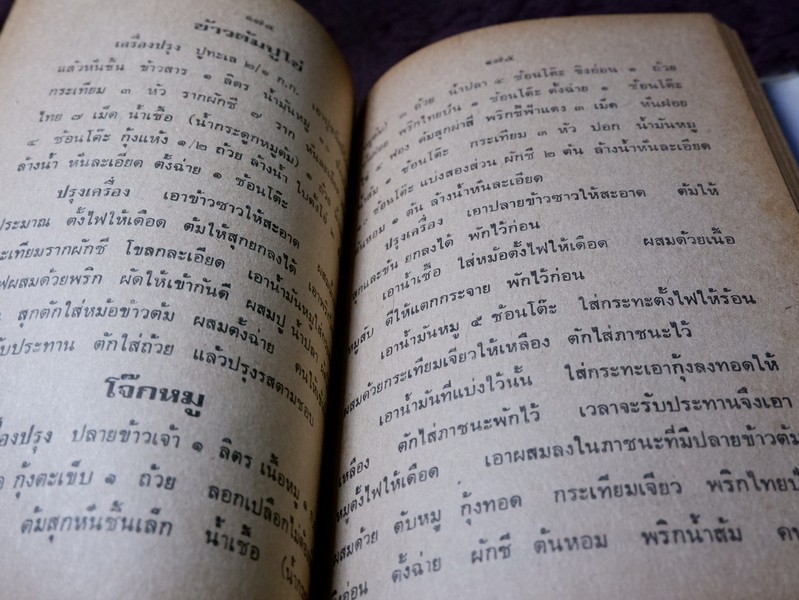 ๑๗๔
ข้าวต้มปูไข่
เครื่องปรุง ปูทะเล ๒/๑ ก.ก.
แล้วหั่นชิ้น ข้าวสาร ๑ ลิตร น้ำมันหมู
กระเทียม ๓ หัว รากผักชี ๗ ราก
ไทย ๗ เม็ด น้ำเชื้อ (น้ำกระดูกหมูต้ม) ๑ ถ้วย
๔ ช้อนโต๊ะ กุ้งแห้ง ๑/๒ ถ้วย ล้างน้ำ ใบตั้งโอ๋ ๒
ล้างน้ำ หั่นละเอียด ตั้งฉ่าย ๑ ช้อนโต๊ะ
ปรุงเครื่อง เอาข้าวซาวให้สะอาด
ประมาณ ตั้งไฟให้เดือด ต้มให้สุกยกลงได้
กระเทียมรากผักชี โขลกละเอียด เอาน้ำมันหมูใส่
ผสมด้วยพริก ผัดให้เข้ากันดี ผสมปู น้ำปลา
สุกตักใส่หม้อข้าวต้ม ผสมตั้งฉ่าย คนให้
รับประทาน ตักใส่ถ้วย แล้วปรุงรสตามชอบ
โจ๊กหมู
เครื่องปรุง ปลายข้าวเจ้า ๑ ลิตร เนื้อหมู ๑
กุ้งตะเข็บ ๑ ถ้วย ลอกเปลือกไม่
ต้มสุกหั่นชิ้นเล็ก น้ำเชื้อ
๑๗๕
๓ ถ้วย น้ำปลา ๔ ช้อนโต๊ะ ขิงอ่อน ๑ ถ้วย
พริกไทยป่น ๑ ช้อนโต๊ะ ตั้งฉ่าย ๑ ช้อนโต๊ะ
๕ ฟอง ต้มสุกผ่าสี่ พริกชี้ฟ้าแดง ๓ เม็ด หั่นฝอย
๑ ช้อนโต๊ะ กระเทียม ๓ หัว ปอก น้ำมันหมู
ช้อนโต๊ะ แบ่งสองส่วน ผักชี ๒ ต้น ล้างน้ำหั่นละเอียด
ต้นหอม ๑ ต้น ล้างน้ำหั่นละเอียด
ปรุงเครื่อง เอาปลายข้าวซาวให้สะอาด ต้มให้
สุกและข้น ยกลงได้ พักไว้ก่อน
เอาน้ำเชื้อ ใส่หม้อตั้งไฟให้เดือด ผสมด้วยเนื้อ
หมูสับ ตีให้แตกกระจาย พักไว้ก่อน
เอาน้ำมันหมู ๕ ช้อนโต๊ะ ใส่กระทะตั้งไฟให้ร้อน
ผสมด้วยกระเทียมเจียวให้เหลือง ตักใส่ภาชนะไว้
เอาน้ำมันที่แบ่งไว้นั้น ใส่กระทะเอากุ้งลงทอดให้
เหลือง ตักใส่ภาชนะพักไว้ เวลาจะรับประทานจึงเอา
หมูตั้งไฟให้เดือด เอาผสมลงในภาชนะที่มีปลายข้าวต้ม
ผสมด้วย ตับหมู กุ้งทอด กระเทียมเจียว พริกไทยป่น
ขิงอ่อน ตั้งฉ่าย ผักชี ต้นหอม พริกน้ำส้ม